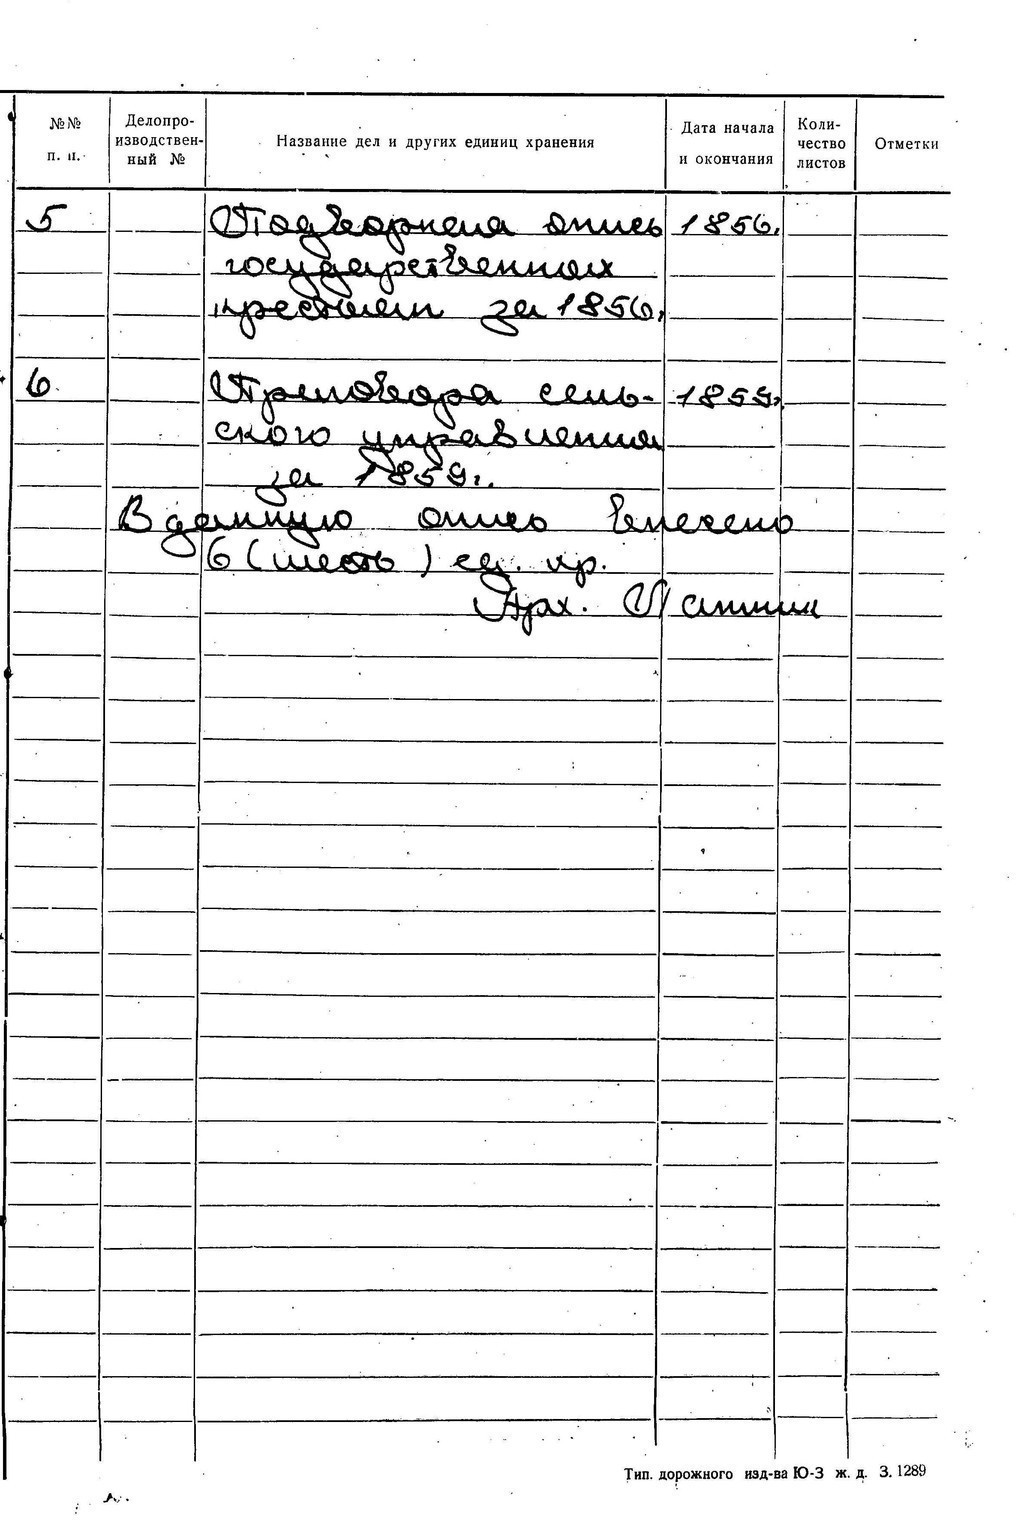 №№ п. п.
Делопро-
изводствен-
ный №
Название дел и других единиц хранения
Дата начала
и окончания
Коли-
чество
листов
Отметки
5 Подворная опись 1856.
государственных
крестьян за 1856.
6. Приговора сель- 1859г.
ского управления
за 1859г.
В данную опись внесено
6 (шесть) ед. хр.
Арх.
Тип. дорожного изд-ва Ю-З ж. д. З. 1289